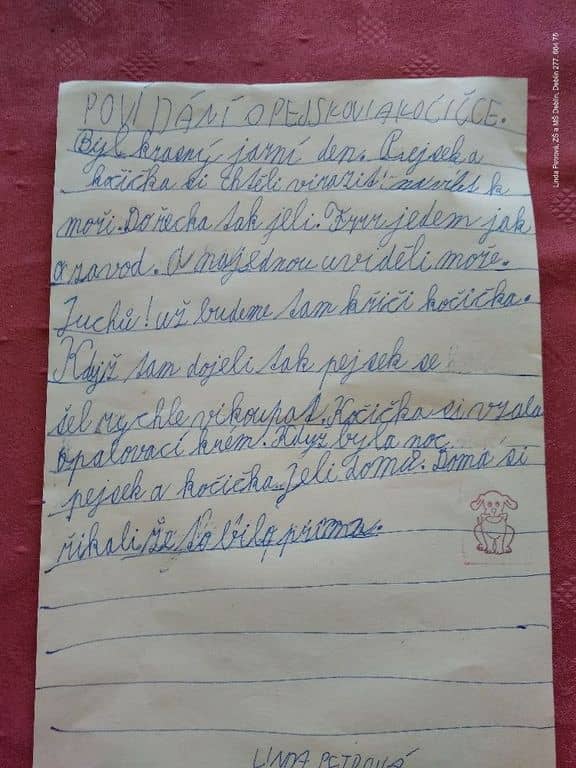 POVÍDÁNÍ O PEJSKOVI A KOČIČCE.
Býl krasní, jarní den. Pejsek a
kočička si chtěli virazit na vílet k
moři. Do řecka tak jeli. Frrr jedem jak
o zavod. A najednou uviděli moře.
Juchů! už budeme tam křičí kočička.
Když tam dojeli tak pejsek se
šel rychle vikoupat. Kočička si vzala
opalovací krém. Když byla noc
pejsek a kočička. Jeli domu. Doma si
řikali že to bílo prima.
LINDA PETROVÁ
Linda Petrová, ZŠ a MŠ Deblín, Deblín 277, 664 75